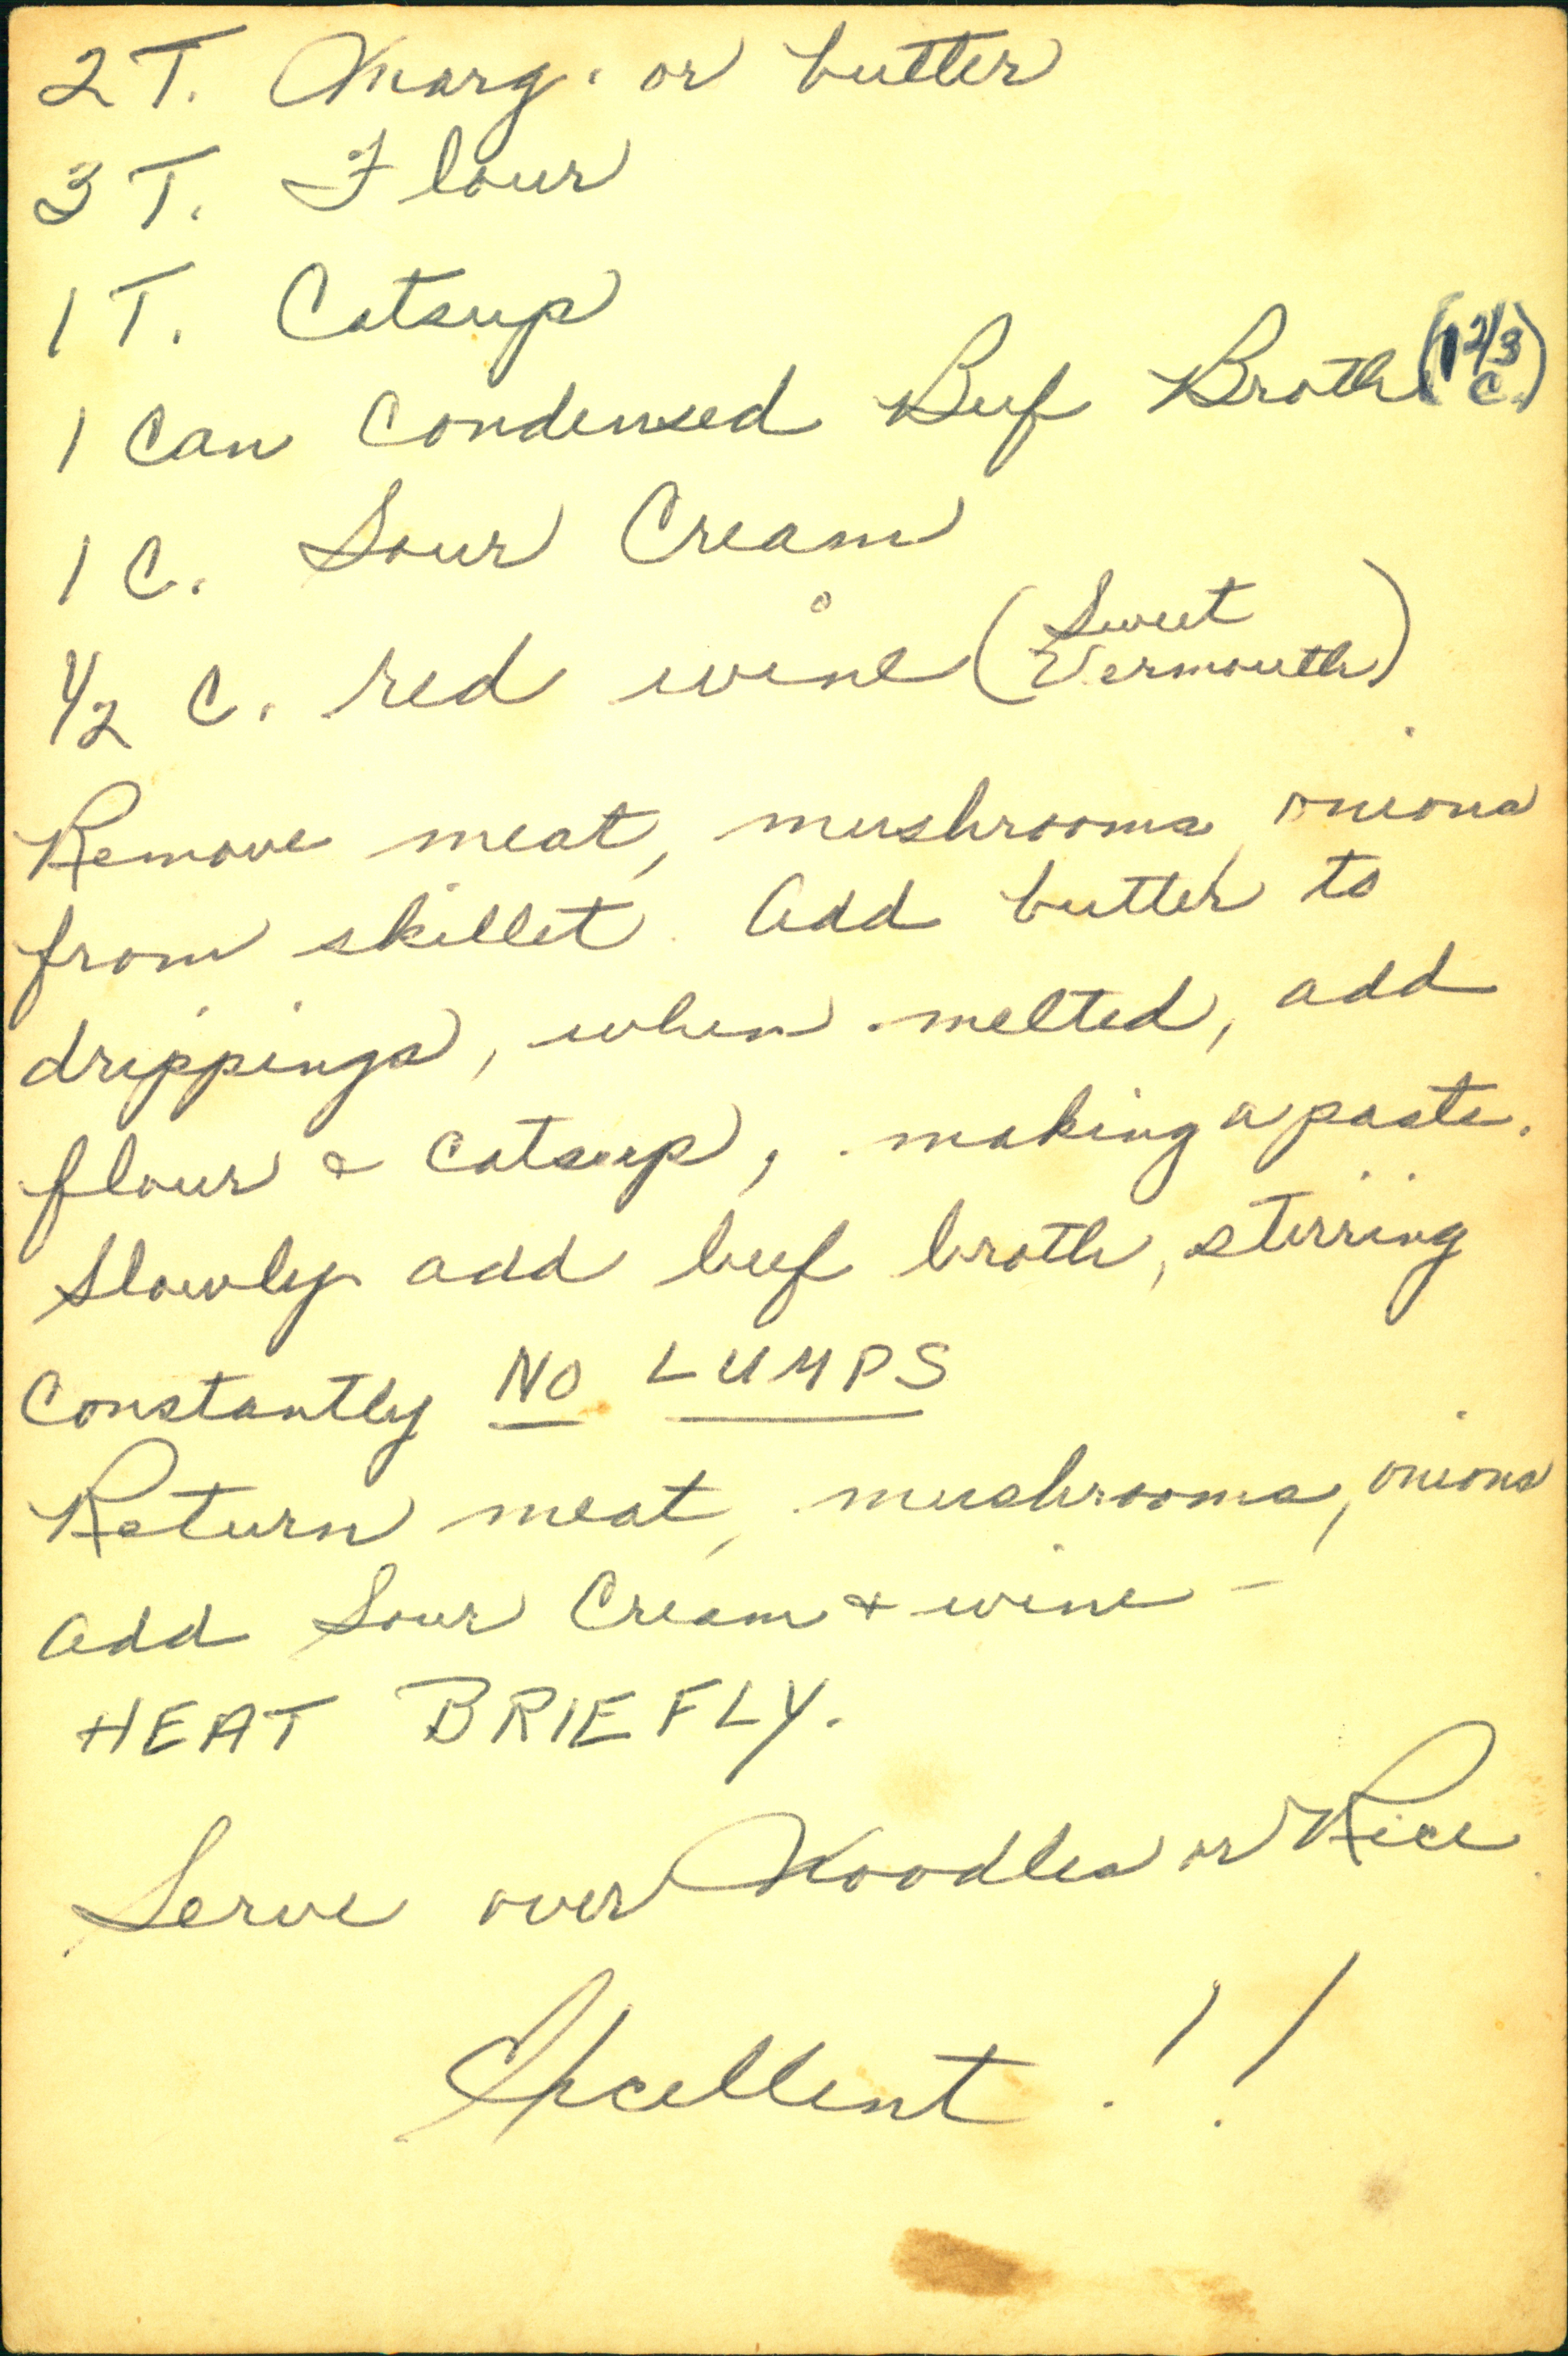 2 T. Marg. or butter
3 T. Flour
1 T. Catsup
1 Can Condensed Beef Broth (1 2/3 C.)
1 C. Sour Cream
1/2 C. red wine (Sweet Vermouth)
Remove meat, mushrooms, onions
from skillet. Add butter to
drippings, when melted, add
flour & catsup, making a paste.
Slowly add beef broth, stirring
Constantly NO LUMPS
Return meat, mushrooms, onions
add Sour Cream & wine –
HEAT BRIEFLY.
Serve over Noodles or Rice
Excellent !!